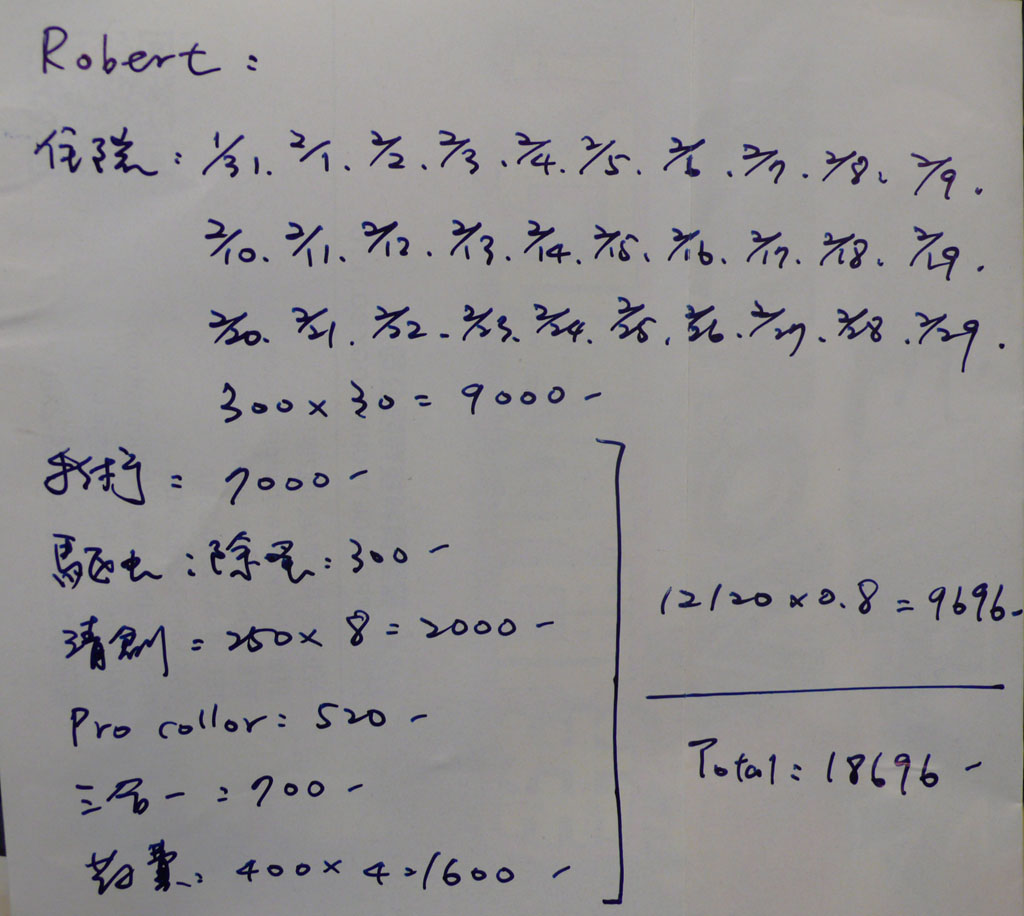 Robert :
住院 : 1/31. 2/1. 2/2. 2/3. 2/4. 2/5. 2/6. 2/7. 2/8. 2/9.
2/10. 2/11. 2/12. 2/13. 2/14. 2/15. 2/16. 2/17. 2/18. 2/19.
2/20. 2/21. 2/22. 2/23. 2/24. 2/25. 2/26. 2/27. 2/28. 2/29.
300 × 30 = 9000 -
= 7000 -
驅虫 : 除蚤 : 300 -
清創 = 250 × 8 = 2000 -
Pro collor : 520 -
三合一 : 700 -
費 : 400 × 4 = 1600 -
12120 × 0.8 = 9696 -
Total : 18696 -